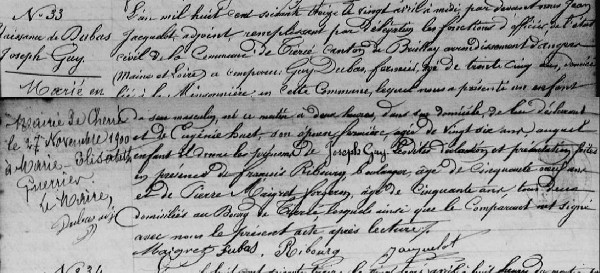 N° 33
Naissance de Dubas
Joseph Guy
Marié en
L'an mil huit cent soixante treize le vingt avril à midi, par devant nous Jean
Jacquelot, adjoint remplissant par Délégation les fonctions d'officier de l'état
civil de la Commune de Tiercé canton de Briollay arrondissement d'angers
(Maine et Loire) a comparu Guy Dubas, fermier, âgé de trente cinq ans, domicilié
à la Minsonnière en cette Commune, lequel nous a présenté un enfant
Mairie de
le 27 Novembre 1900
à Marie Elisabeth
Guerrier
Le Maire,
Dubas
de sexe masculin, né ce matin à deux heures, dans son domicile, de lui déclarant
et de Eugénie huet, son épouse, fermière, âgée de vingt six ans, auquel
enfant il donne les prénoms de Joseph Guy Lesdites déclaration et présentation faites
en présence de François Ribourg boulanger, âgé de Cinquante neuf ans
et de Pierre Maigret âgé de Cinquante ans, tous deux
domiciliés au Bourg de Tiercé, lesquels ainsi que le Comparant ont signé
avec nous le présent acte après lecture.
Maigret Dubas Ribourg Jacquelot
N° 34